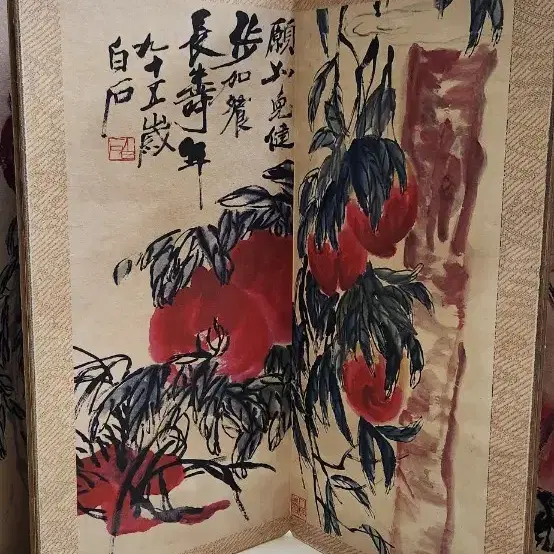 願健
步加餐
長壽年
九十五歲
白石